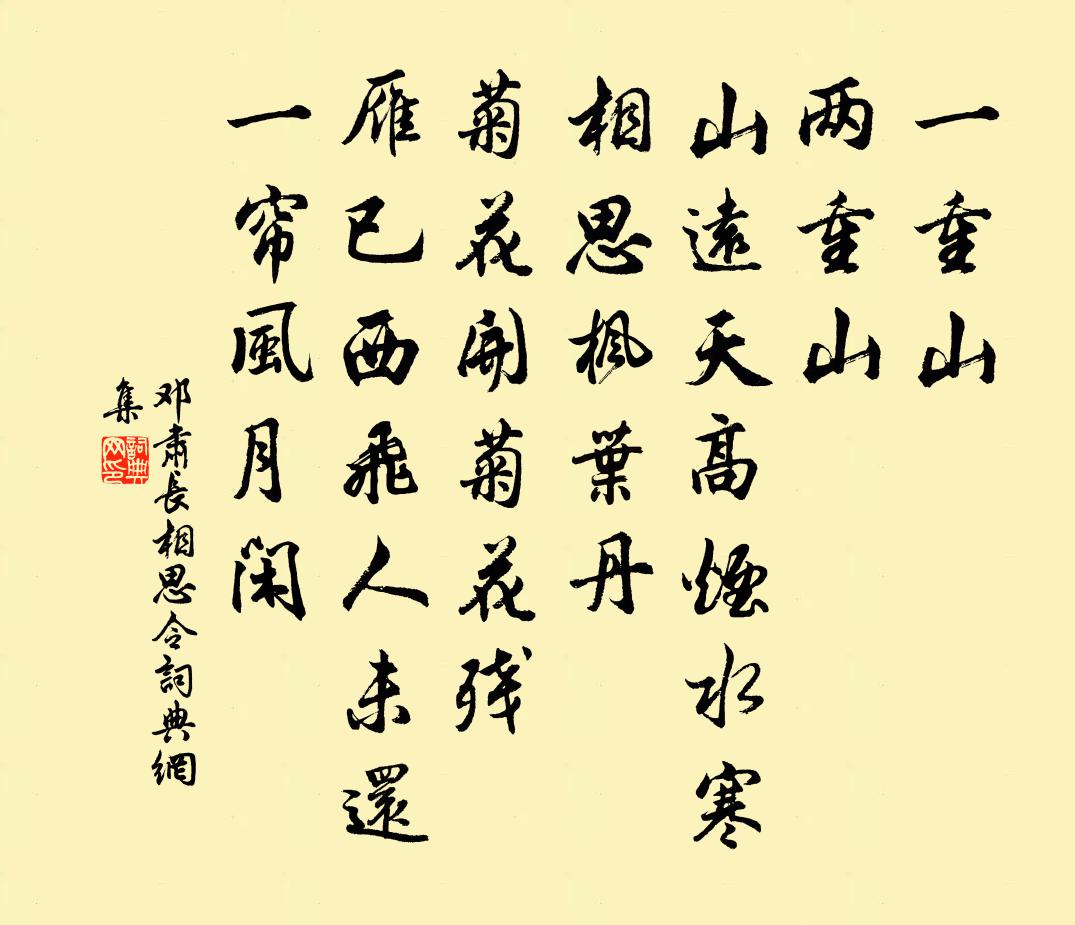 一重山
两重山
山遠天高煙水寒
相思楓葉丹
菊花開菊花残
雁已西飛人未還
一帘風月閑
邓肅長相思令詞典網
集
詞典
网印